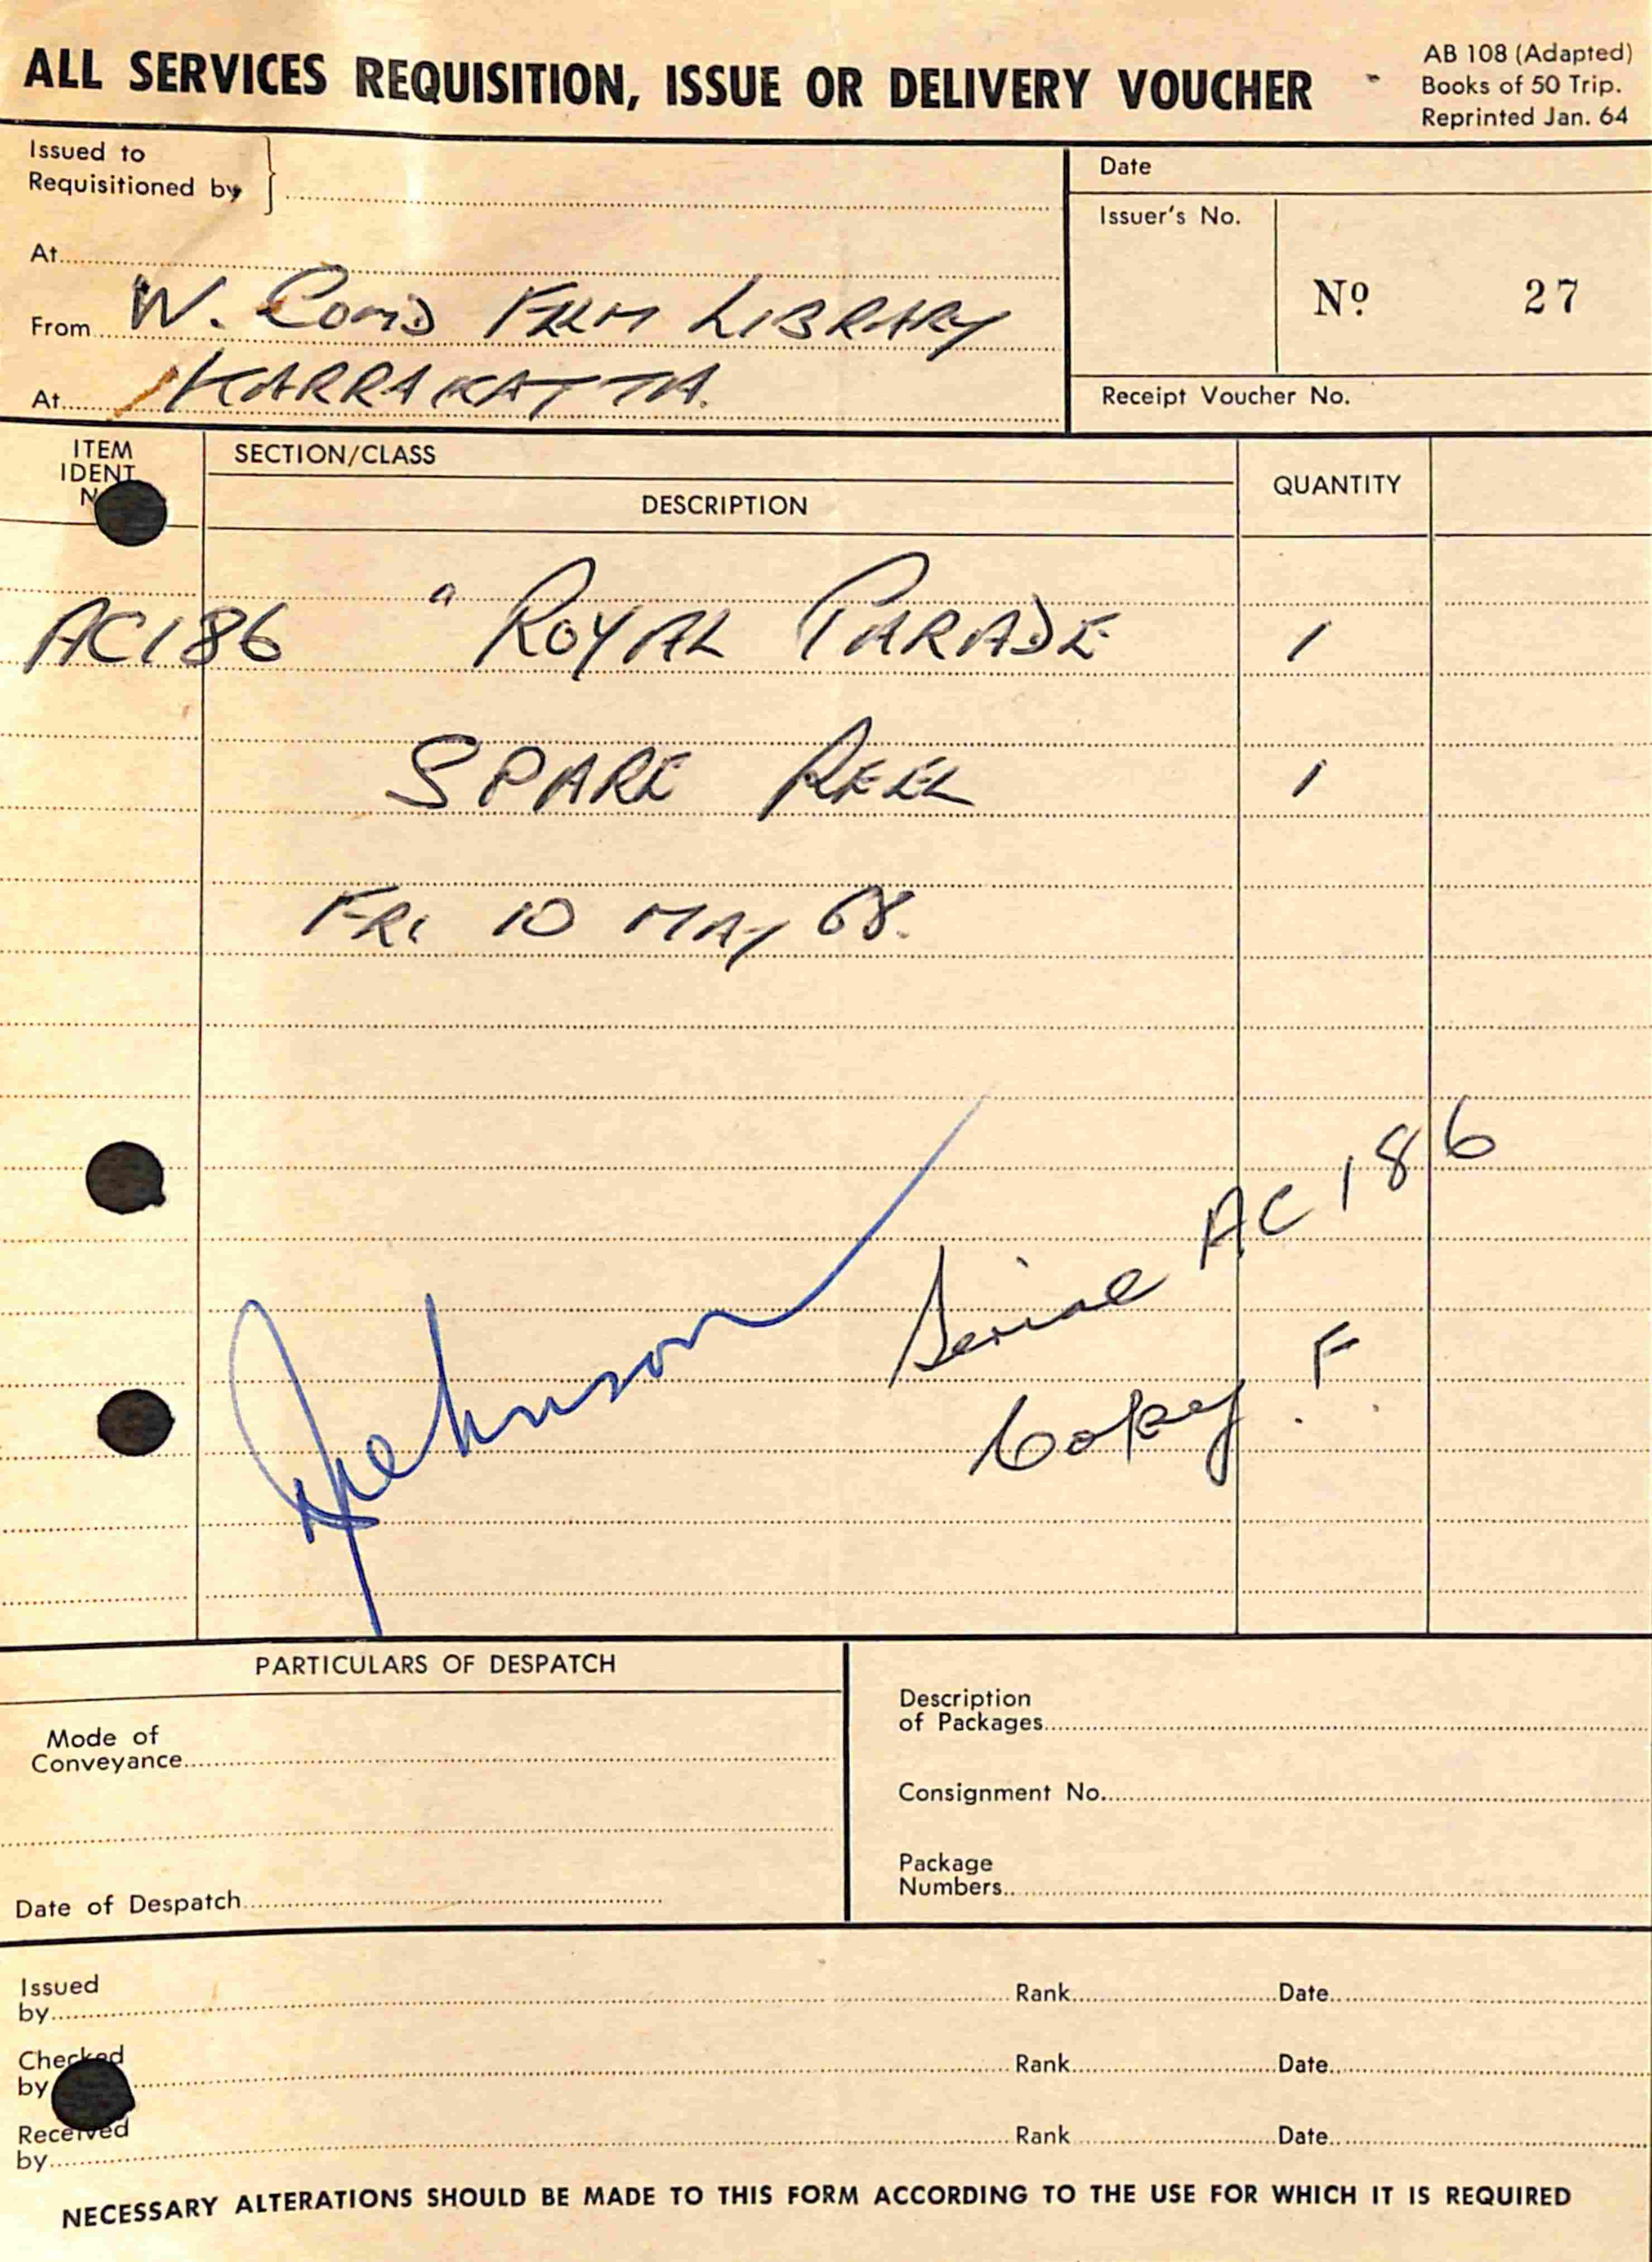 ALL SERVICES REQUISITION, ISSUE OR DELIVERY VOUCHER
AB 108 (Adapted)
Books of 50 Trip.
Reprinted Jan. 64
Issued to
Requisitioned by
At
From W. Comd FILM LIBRARY
At KARRAKATTA.
Date
Issuer's No.
No 27
Receipt Voucher No.
ITEM
IDENT
SECTION/CLASS
DESCRIPTION
QUANTITY
AC186 " ROYAL PARADE 1
SPARE REEL 1
FRI 10 MAY 68.
Serial AC 186
Copy F
Johnson
PARTICULARS OF DESPATCH
Mode of
Conveyance
Date of Despatch
Description
of Packages
Consignment No.
Package
Numbers
Issued
by Rank Date
Checked
by Rank Date
Received
by Rank Date
NECESSARY ALTERATIONS SHOULD BE MADE TO THIS FORM ACCORDING TO THE USE FOR WHICH IT IS REQUIRED